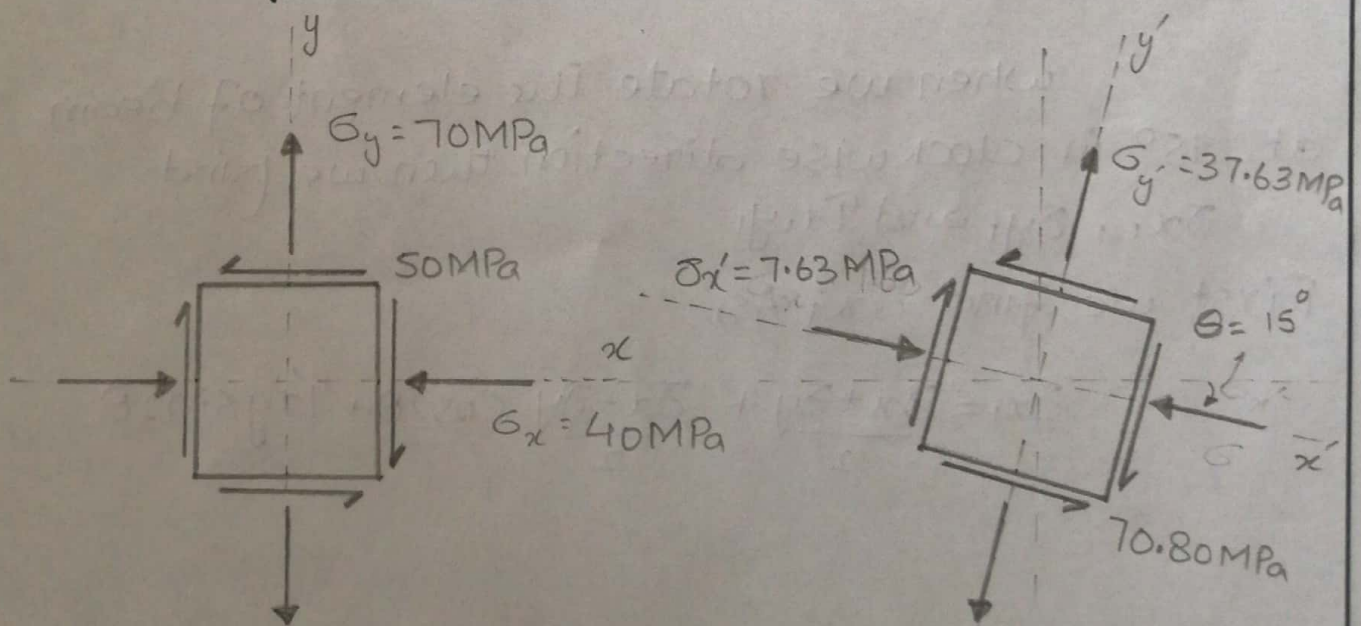 y
σy = 70MPa
50MPa
x
σx = 40MPa
y′
σy′ = 37.63MPa
σx′ = 7.63MPa
θ = 15°
x′
70.80MPa